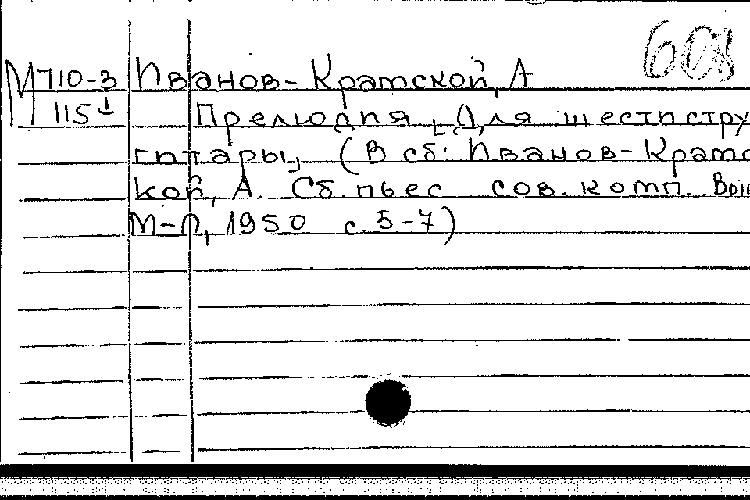 608
М710-3 Иванов-Кратской, А
115 Прелюдия [Для шестистру
гитары] (В сб: Иванов-Кратс
кой, А. Сб. пьес сов. комп. Вып
М-Л, 1950 с. 5-7)